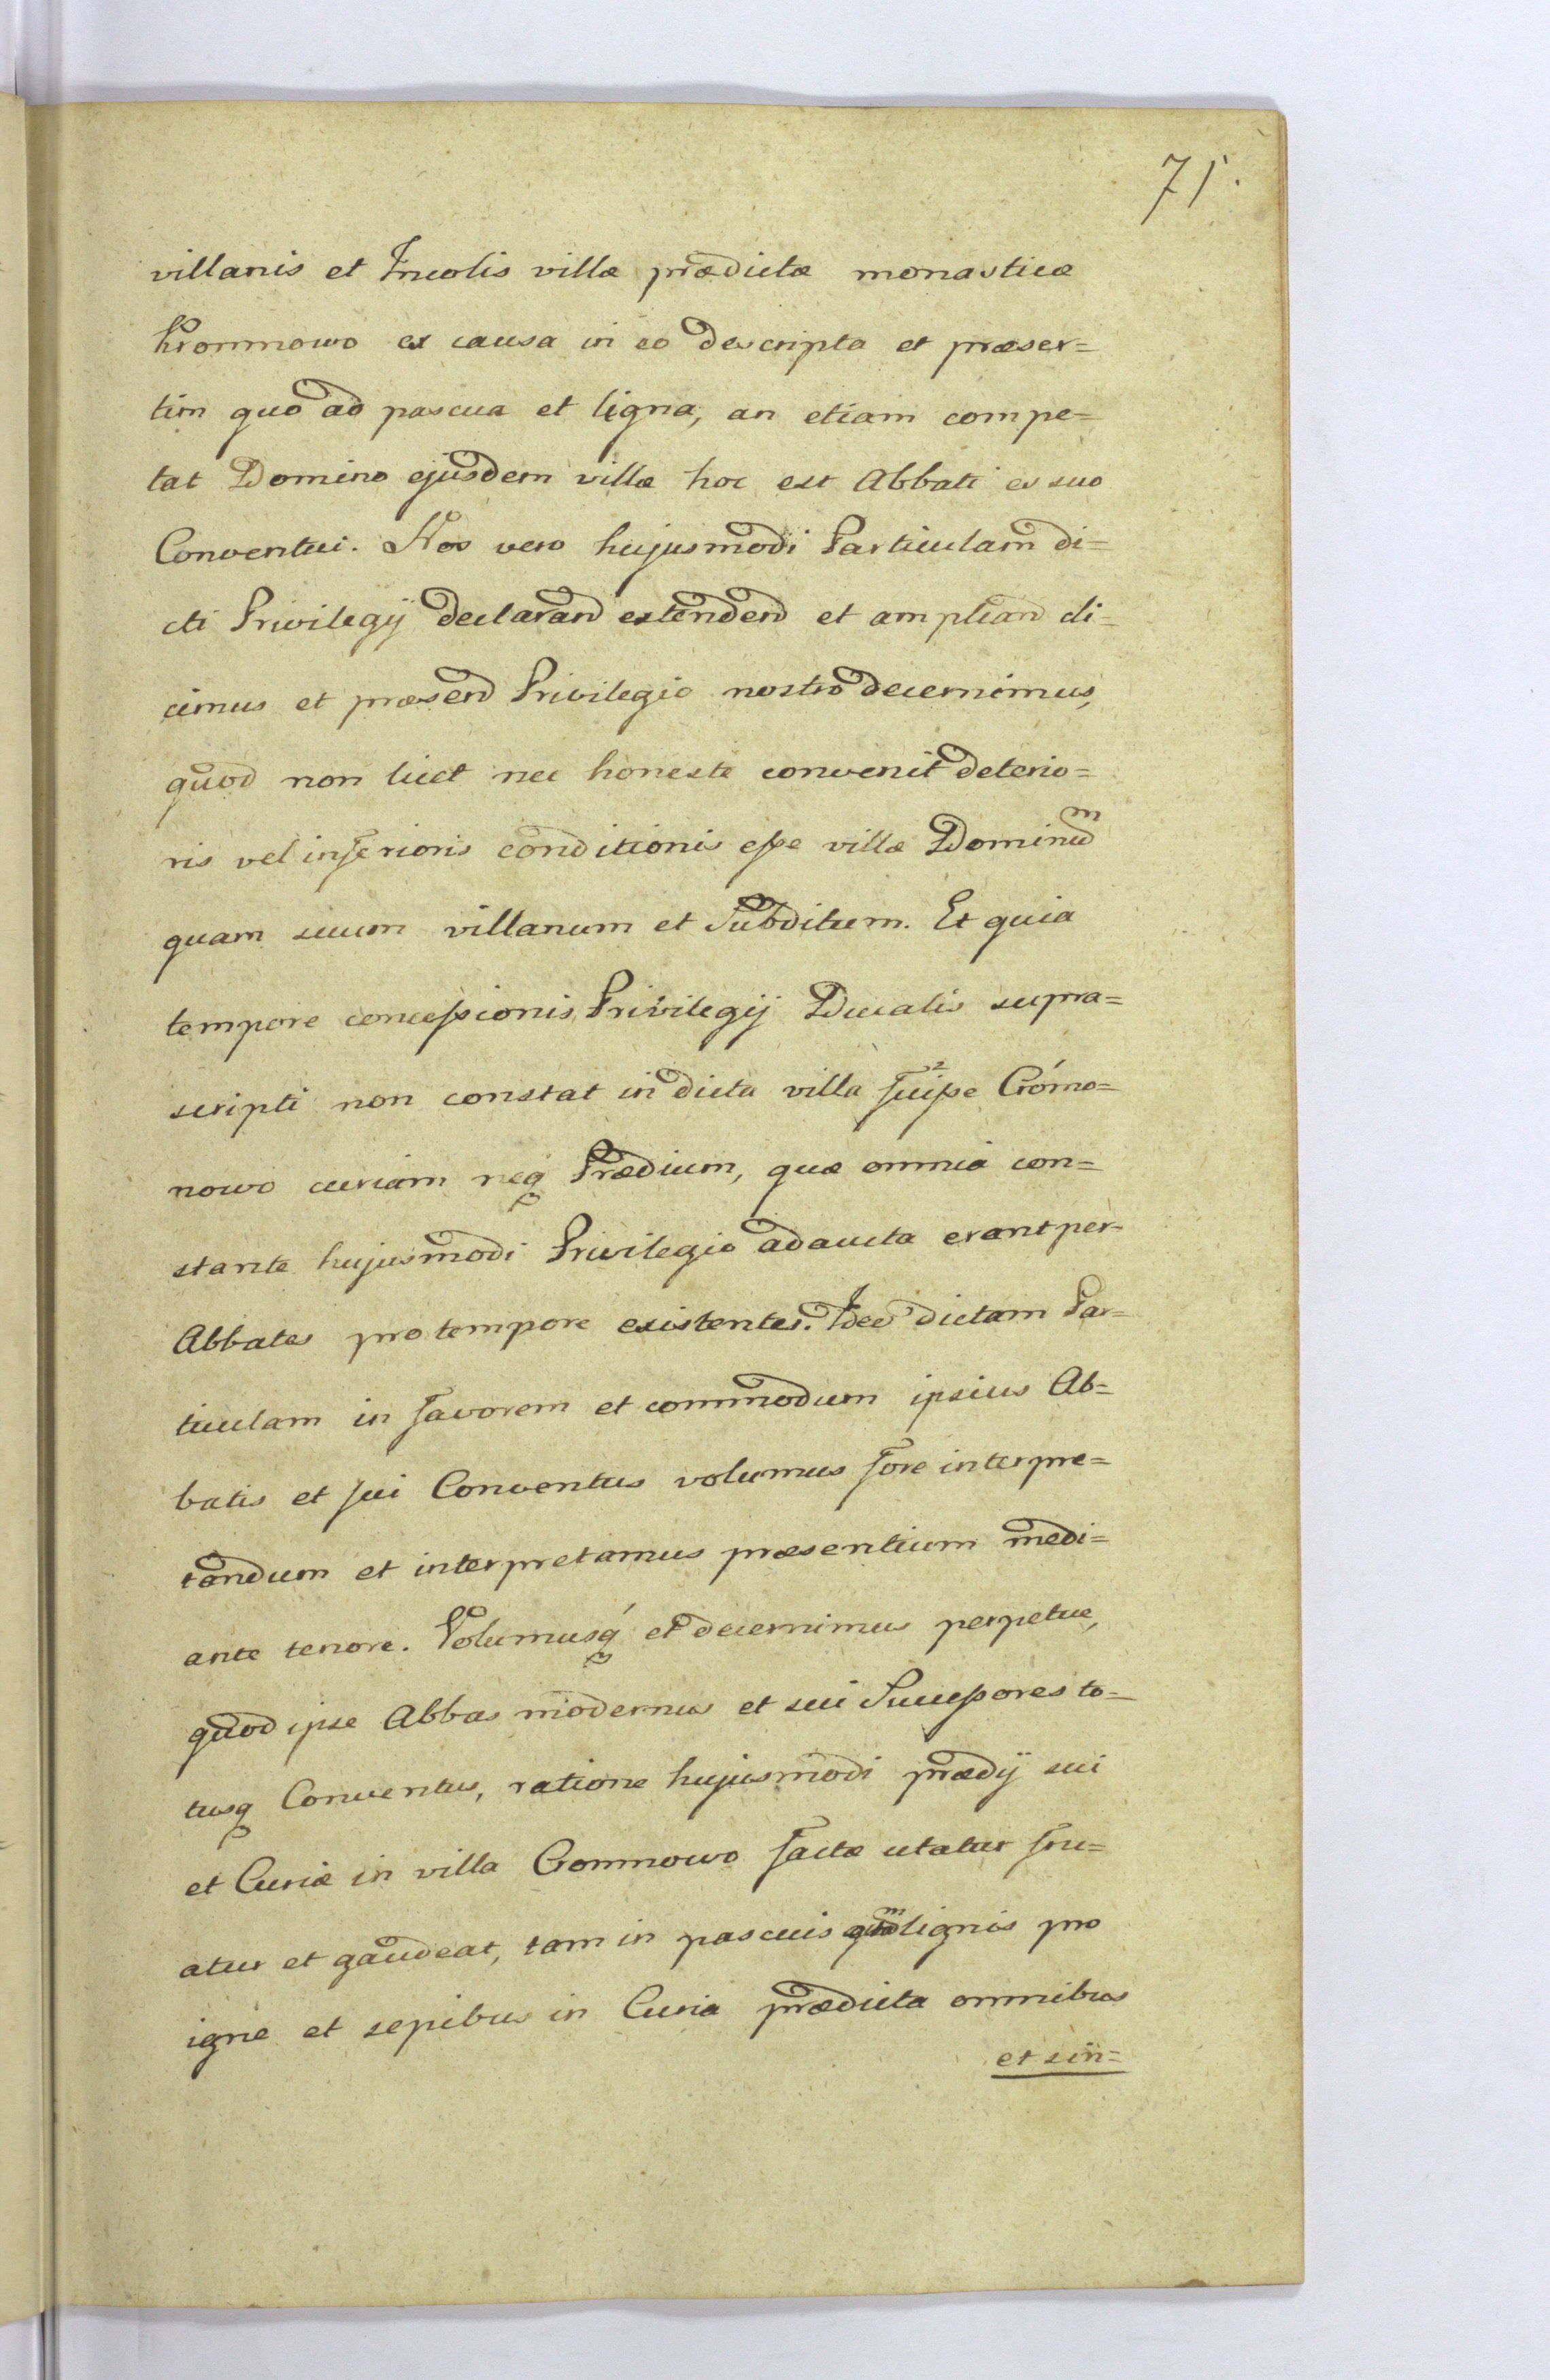 71.
villanis et Incolis villæ prædictæ monasticæ
Kromnowo ex causa in eo descripta et præser=
tim quo ad pascua et ligna, an etiam compe=
tat Domino ejusdem villæ hoc est Abbati es suo
Conventui. Nos vero hujusmodi Particulam di=
cti Privilegij declarand extendend et ampliand di=
cimus et præsend Privilegio nostro decernimus,
quod non licet nec honeste convenit deterio=
ris vel inferioris conditionis esse villæ Dominum
quam suum villanum et Subditum. Et quia
tempore concessionis Privilegij Ducalis supra=
scripti non constat in dicta villa fuisse Crómo=
nowo curiam neq Prædium, quæ omnia con=
stante hujusmodi Privilegio adaucta erant per=
Abbates pro tempore existentes. Ideo dictam Par=
ticulam in favorem et commodum ipsius Ab=
batis et sui Conventus volumus fore interpre=
tandum et interpretamus præsentium medi=
ante tenore. Volumusq et decernimus perpetue,
quod ipse Abbas modernus et sui Successores to=
tusq Conventus, ratione hujusmodi prædij sui
et Curiæ in villa Cromnowo factæ utatur fru=
atur et gaudeat, tam in pascuis qum lignis pro
igne et sepibus in Curia prædicta omnibus
et sin=